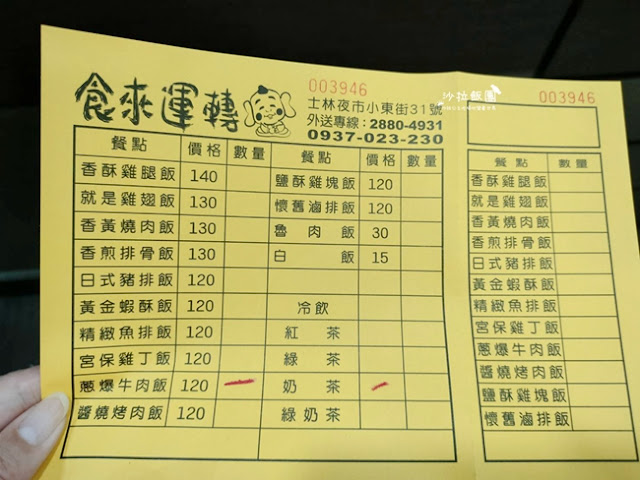 食來運轉
003946
士林夜市小東街31號
外送專線：2880-4931
0937-023-230
餐點 價格 數量 餐點 價格 數量
香酥雞腿飯 140 鹽酥雞塊飯 120
就是雞翅飯 130 懷舊滷排飯 120
香黃燒肉飯 130 魯肉飯 30
香煎排骨飯 130 白飯 15
日式豬排飯 120
黃金蝦酥飯 120 冷飲
精緻魚排飯 120 紅茶
宮保雞丁飯 120 綠茶
蔥爆牛肉飯 120 一 奶茶 一
醬燒烤肉飯 120 綠奶茶
沙拉飯團
003946
餐點 數量
香酥雞腿飯
就是雞翅飯
香黃燒肉飯
香煎排骨飯
日式豬排飯
黃金蝦酥飯
精緻魚排飯
宮保雞丁飯
蔥爆牛肉飯
醬燒烤肉飯
鹽酥雞塊飯
懷舊滷排飯